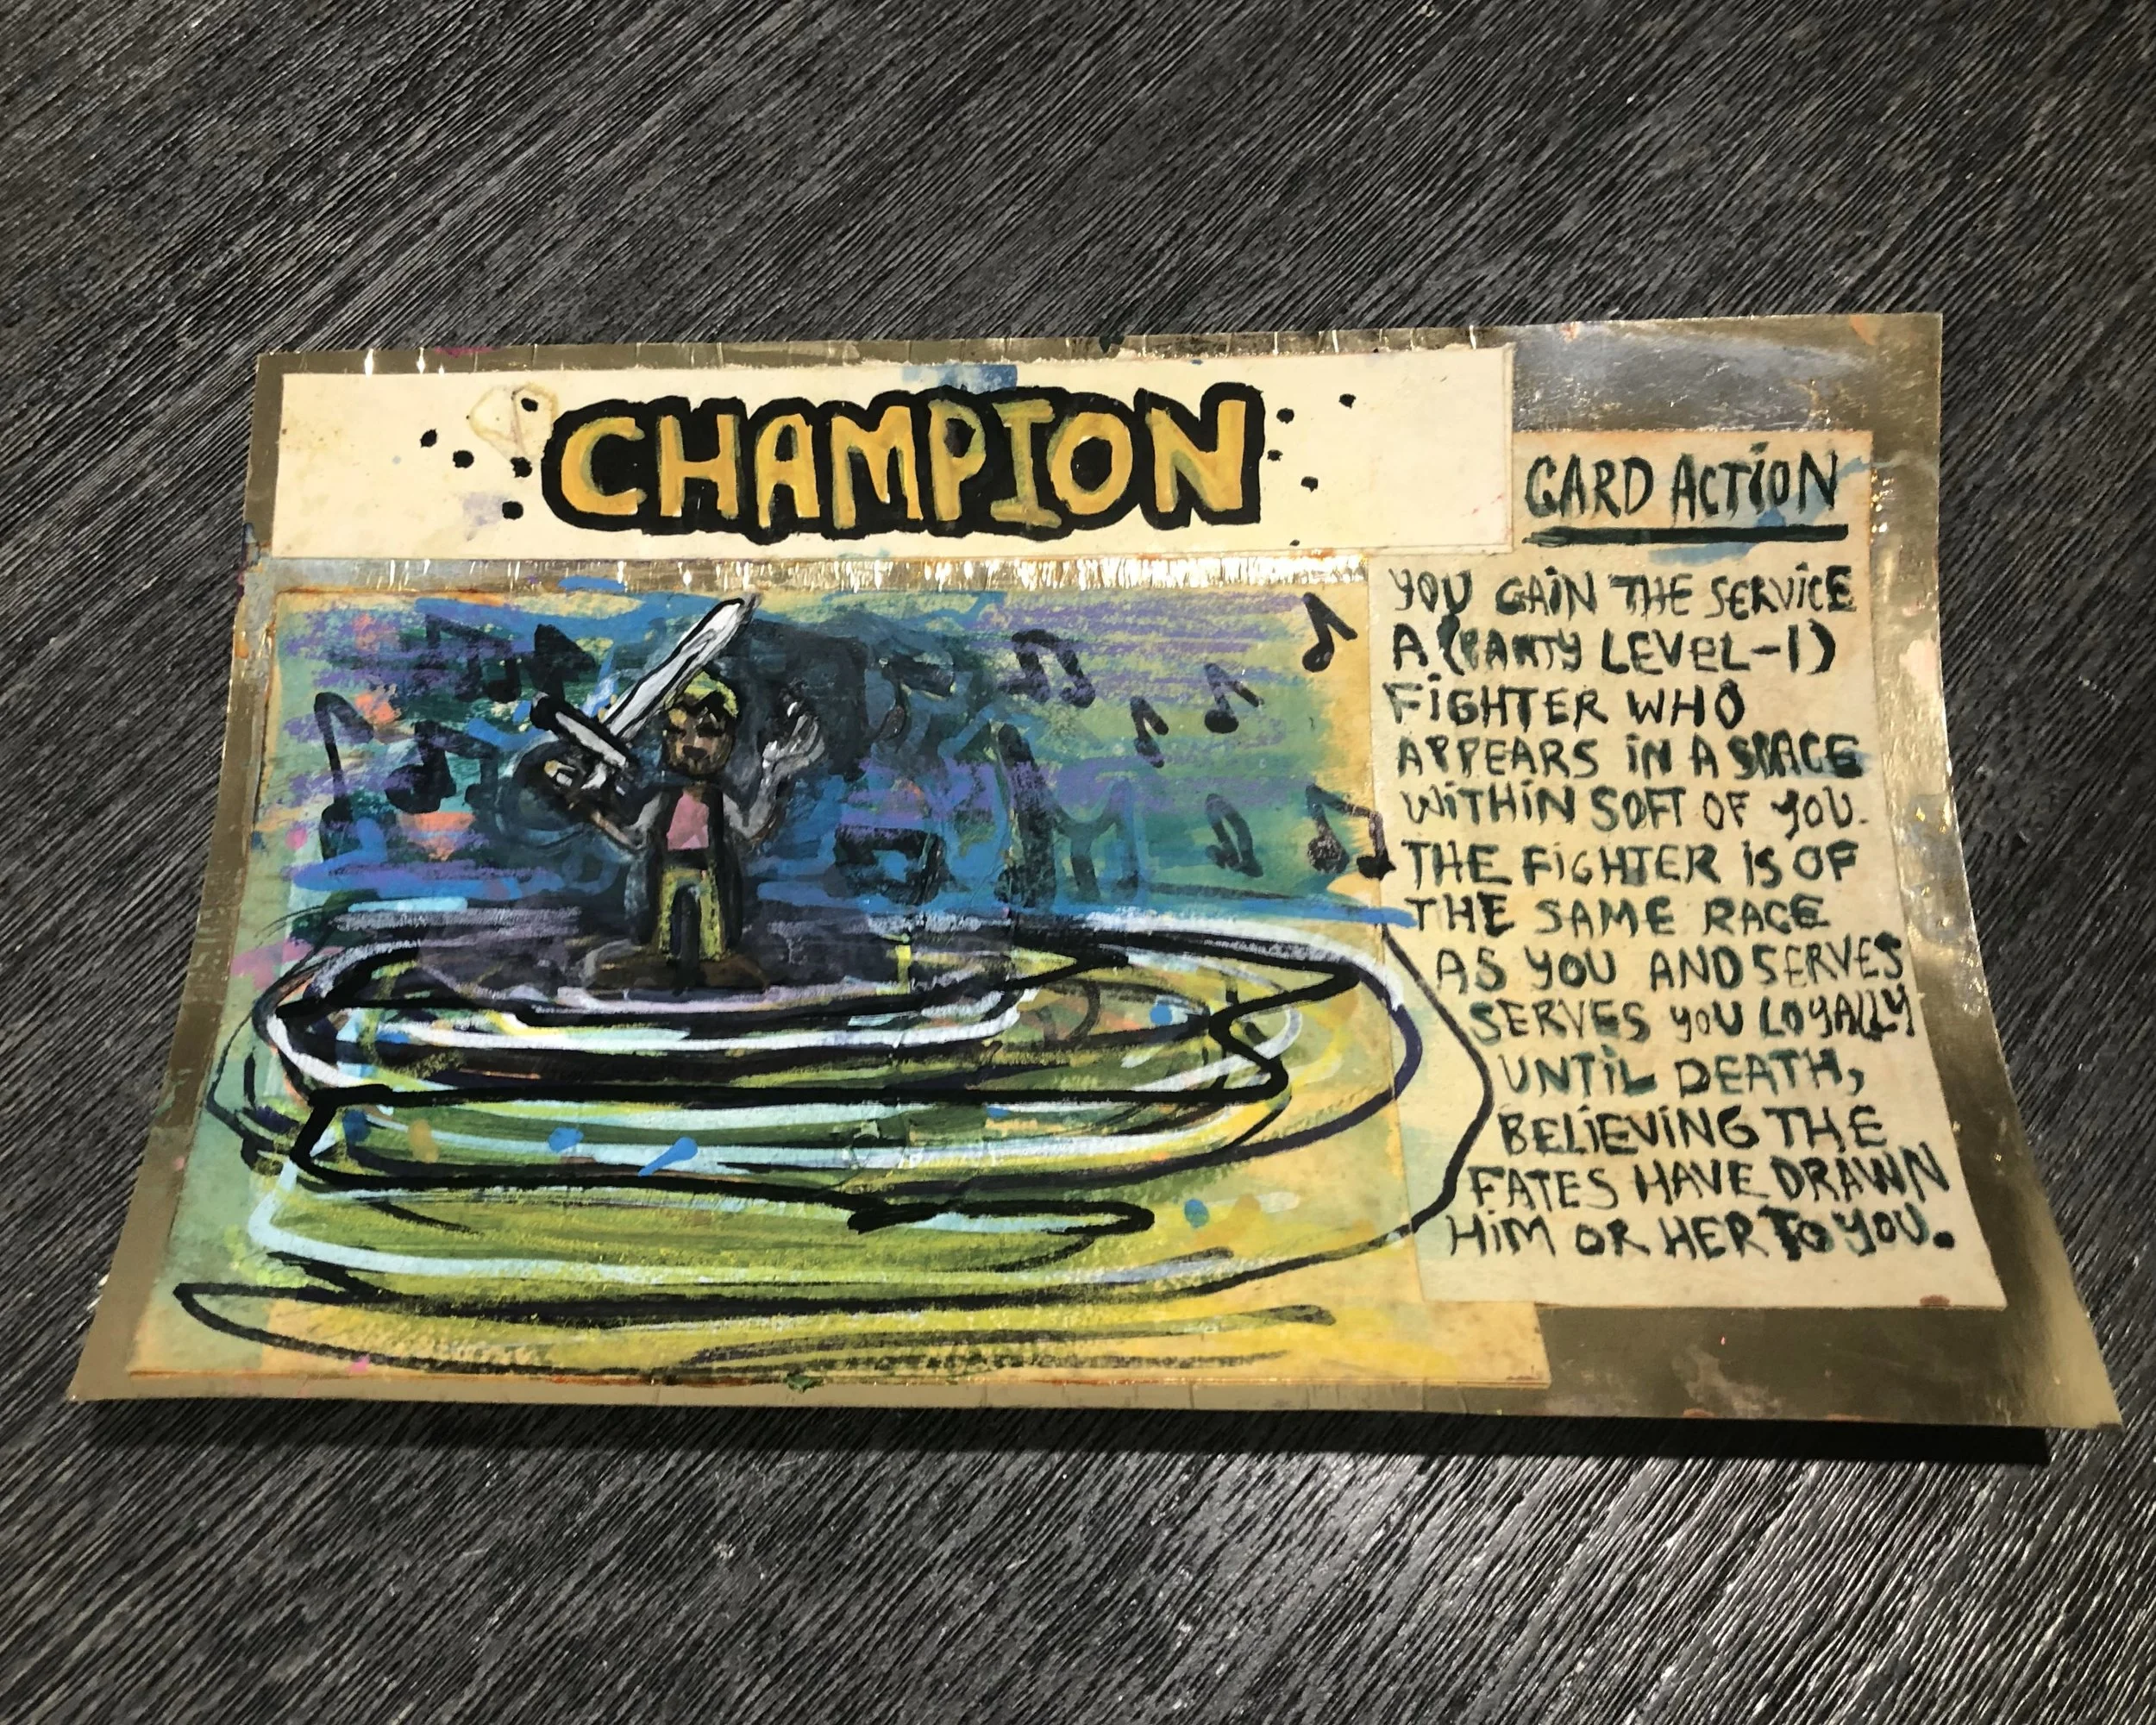 CHAMPION
CARD ACTION
YOU GAIN THE SERVICE
A (PARTY LEVEL-1)
FIGHTER WHO
APPEARS IN A SPACE
WITHIN 50FT OF YOU.
THE FIGHTER IS OF
THE SAME RACE
AS YOU AND SERVES
SERVES YOU LOYALLY
UNTIL DEATH,
BELIEVING THE
FATES HAVE DRAWN
HIM OR HER TO YOU.